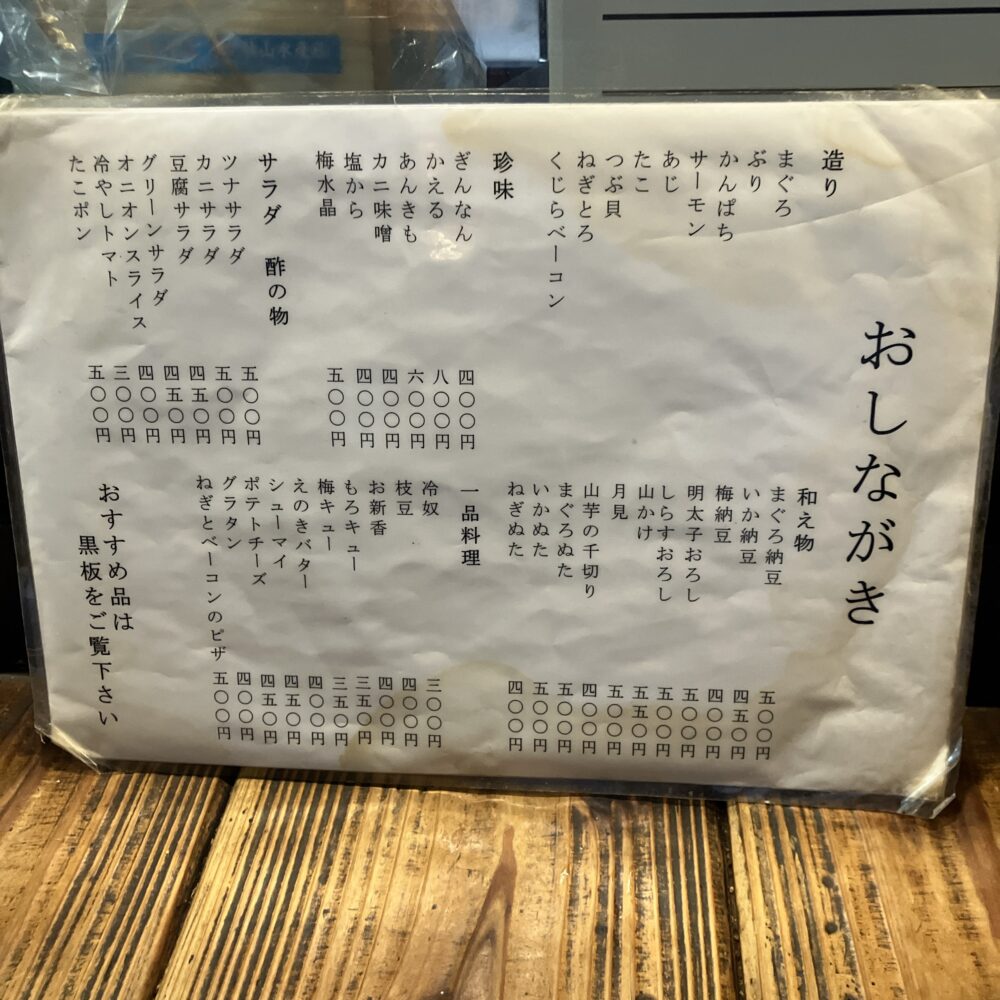 おしながき
造り
まぐろ
ぶり
かんぱち
サーモン
あじ
たこ
つぶ貝
ねぎとろ
くじらベーコン
珍味
ぎんなん 四〇〇円
かえる 八〇〇円
あんきも 六〇〇円
カニ味噌 四〇〇円
塩から 四〇〇円
梅水晶 五〇〇円
サラダ 酢の物
ツナサラダ 五〇〇円
カニサラダ 五〇〇円
豆腐サラダ 四五〇円
グリーンサラダ 四五〇円
オニオンスライス 四〇〇円
冷やしトマト 三〇〇円
たこポン 五〇〇円
和え物
まぐろ納豆 五〇〇円
いか納豆 四五〇円
梅納豆 四〇〇円
明太子おろし 五〇〇円
しらすおろし 五〇〇円
山かけ 五五〇円
月見 五〇〇円
山芋の千切り 四〇〇円
まぐろぬた 五〇〇円
いかぬた 五〇〇円
ねぎぬた 四〇〇円
一品料理
冷奴 三〇〇円
枝豆 四〇〇円
お新香 四〇〇円
もろキュー 三五〇円
梅キュー 三五〇円
えのきバター 四〇〇円
シューマイ 四五〇円
ポテトチーズ 四五〇円
グラタン 四〇〇円
ねぎとベーコンのピザ 五〇〇円
おすすめ品は
黒板をご覧下さい